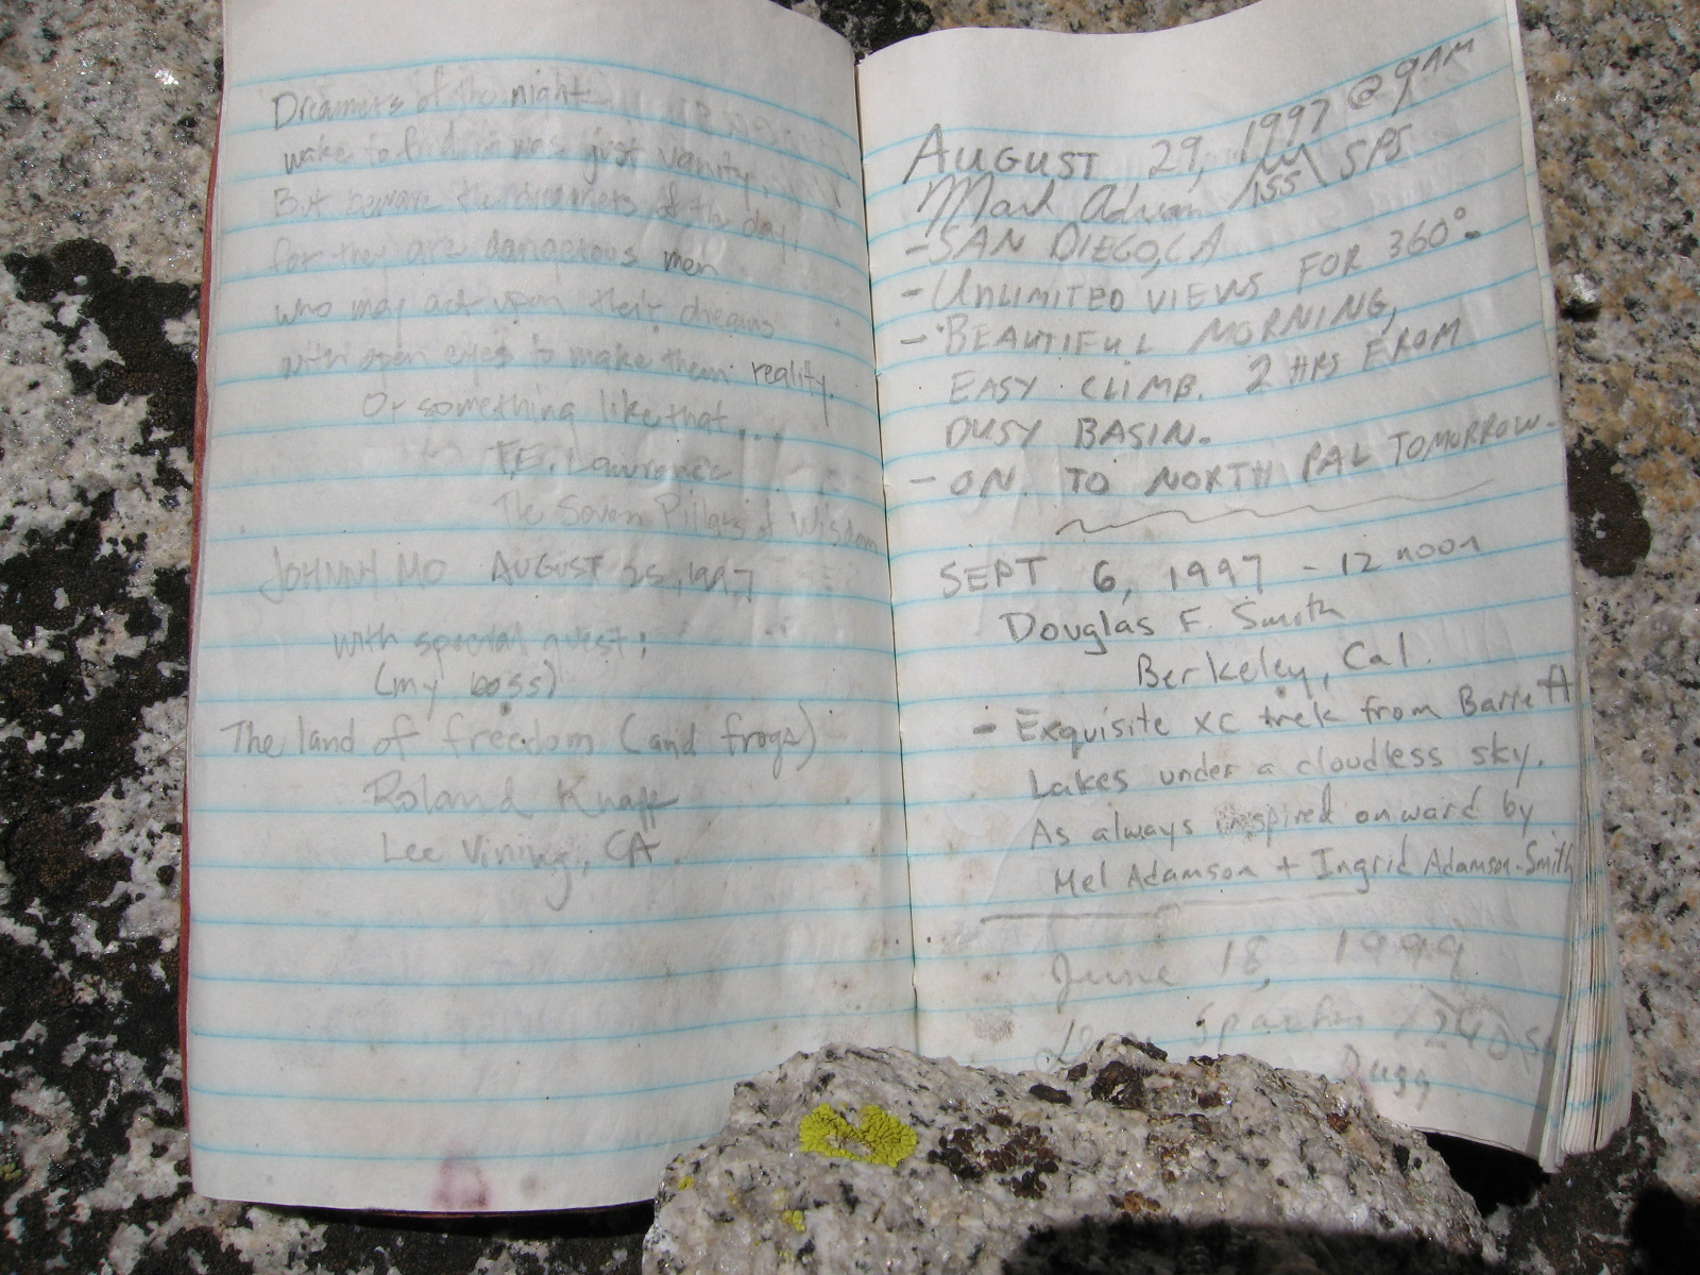 Dreamers of the night
wake to find it was just vanity.
But beware the dreamers of the day,
for they are dangerous men
who may act upon their dreams
with open eyes to make them reality.
Or something like that...
T.E. Lawrence
The Seven Pillars of Wisdom
JOHNNY MO AUGUST 25, 1997
with special guest:
(my boss)
The land of freedom (and frogs)
Roland Knapp
Lee Vining, CA
AUGUST 29, 1997 @ 9AM
Mark Adrian SPS
- SAN DIEGO, CA
- UNLIMITED VIEWS FOR 360°.
- BEAUTIFUL MORNING,
EASY CLIMB. 2 HRS FROM
DUSY BASIN.
- ON TO NORTH PAL TOMORROW.
SEPT 6, 1997 - 12 noon
Douglas F. Smith
Berkeley, Cal.
- Exquisite xc trek from Barrett
Lakes under a cloudless sky.
As always inspired onward by
Mel Adamson + Ingrid Adamson-Smith
June 18, 1999